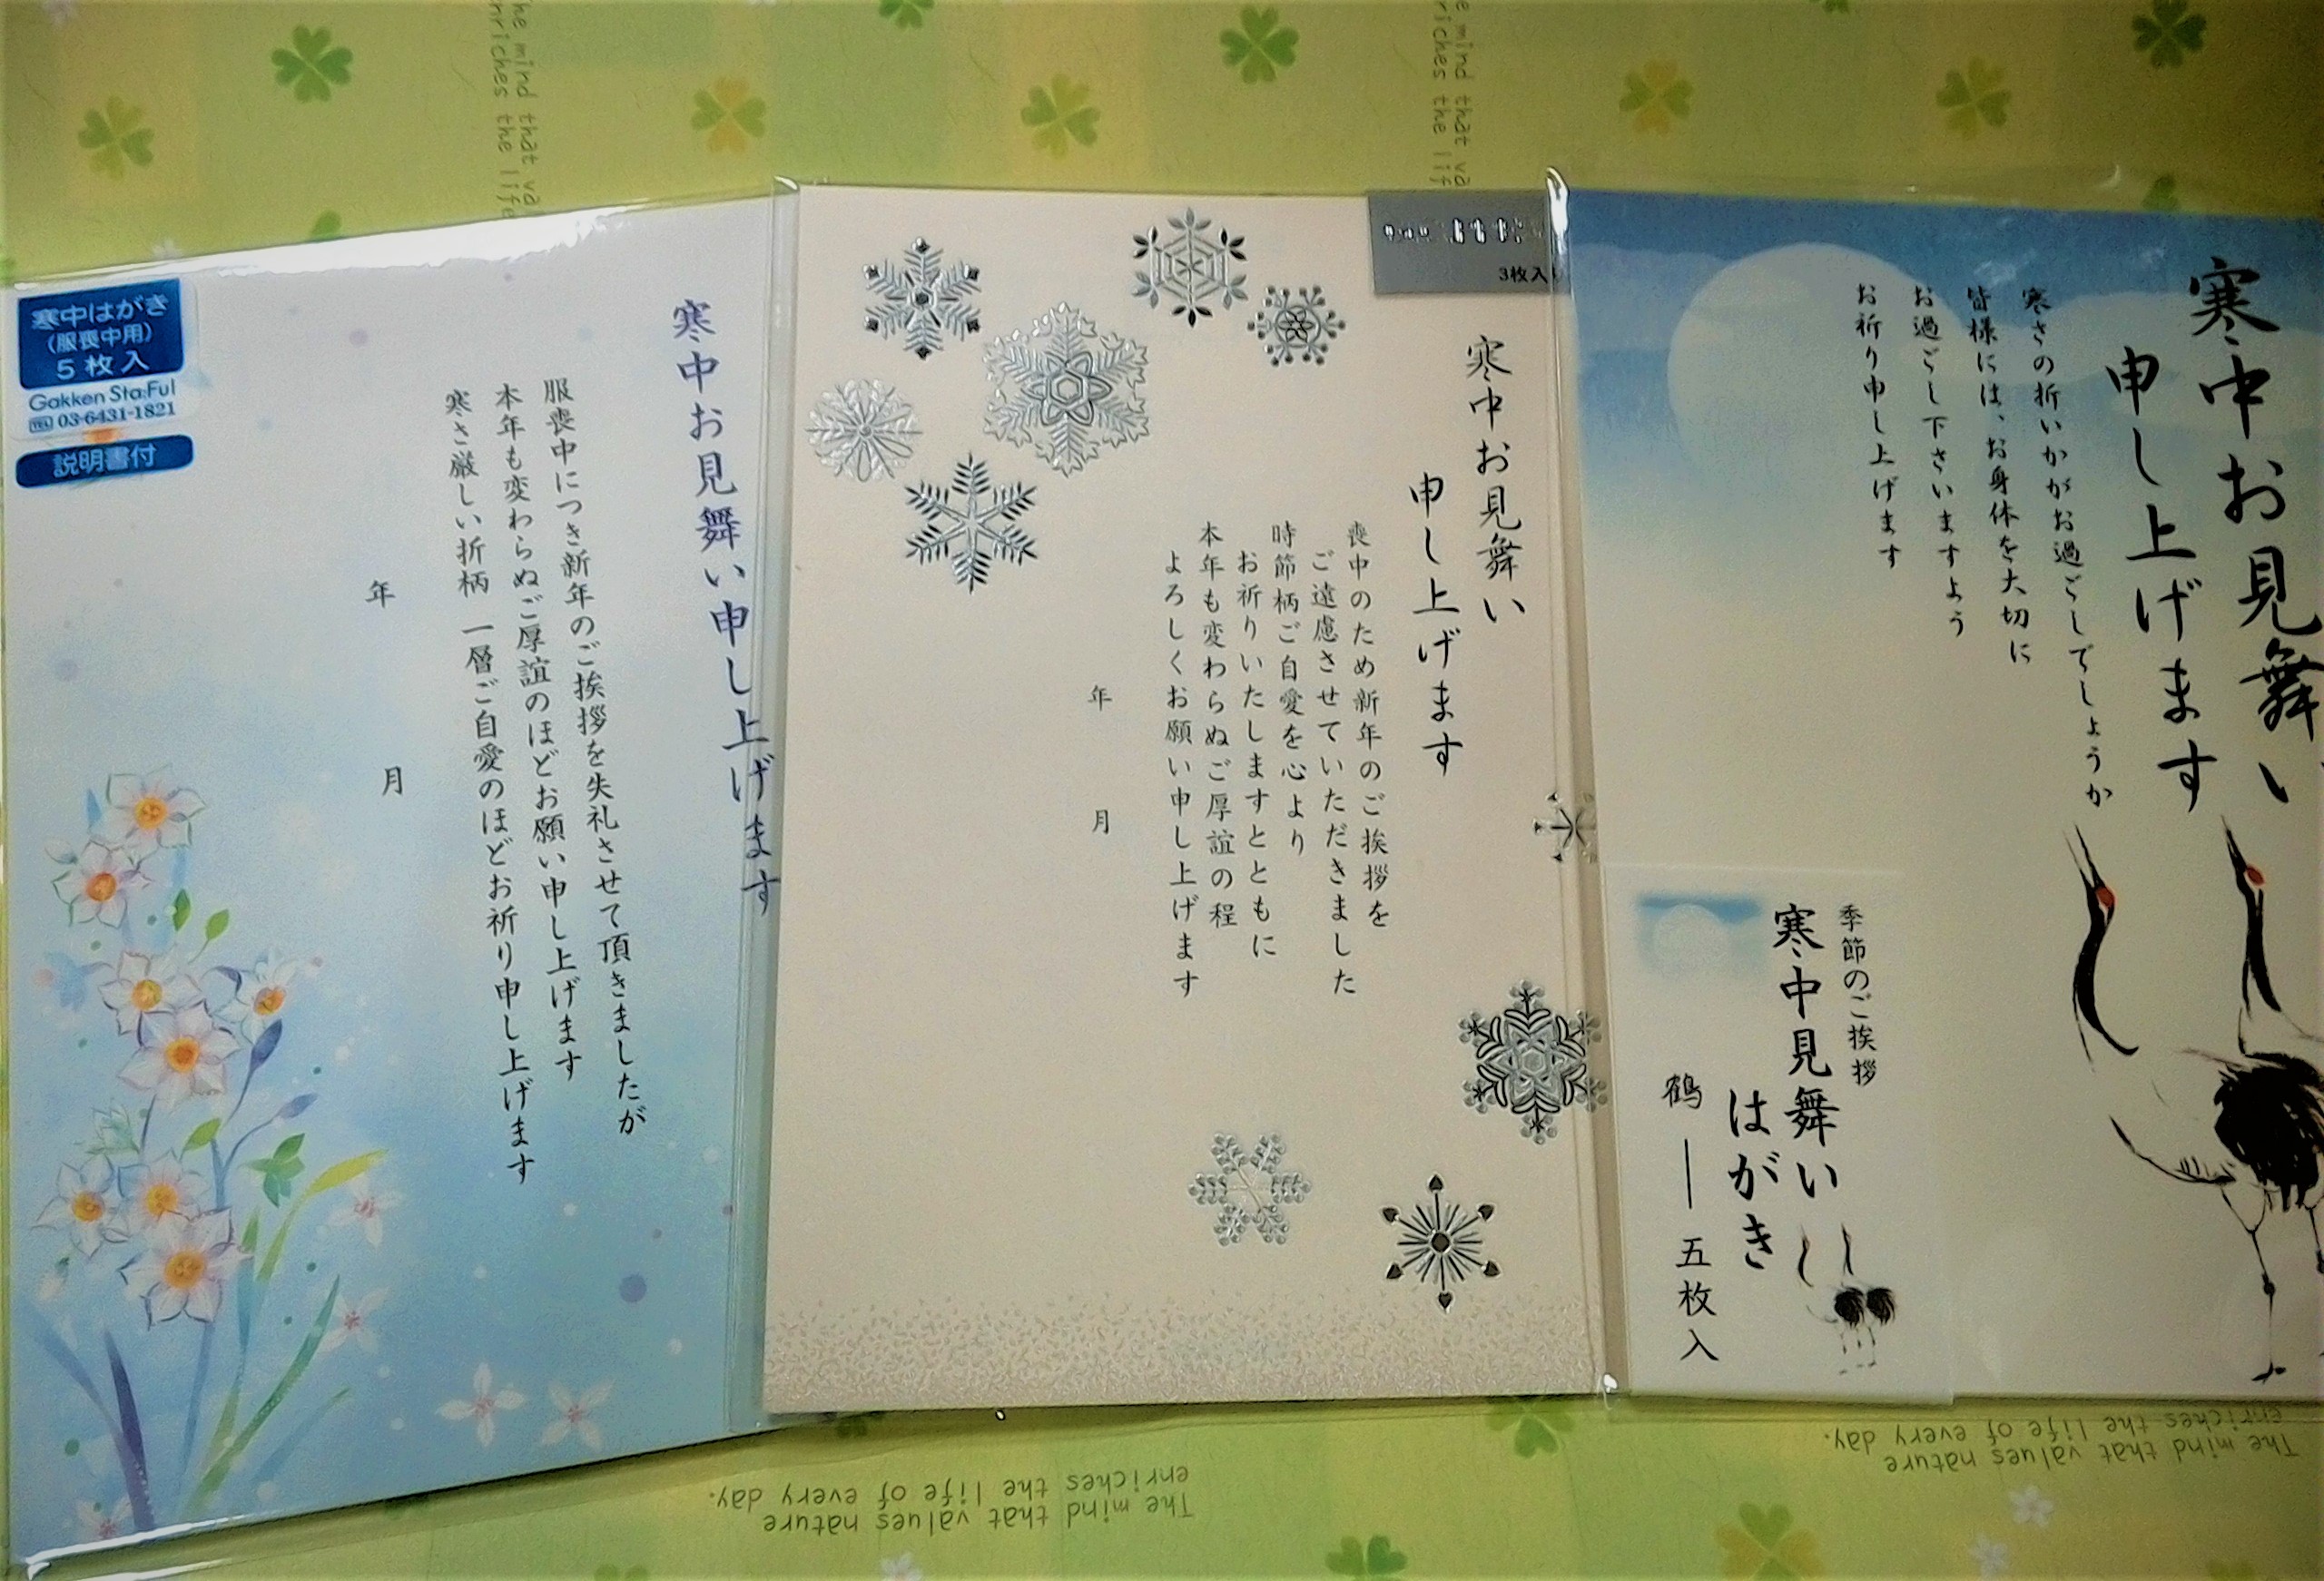 寒中はがき
（服喪中用）
5枚入
Gakken Sta:Ful
TEL 03-6431-1821
説明書付
寒中お見舞い申し上げます
服喪中につき新年のご挨拶を失礼させて頂きましたが
本年も変わらぬご厚誼のほどお願い申し上げます
寒さ厳しい折柄 一層ご自愛のほどお祈り申し上げます
年 月
3枚入
寒中お見舞い
申し上げます
喪中のため新年のご挨拶を
ご遠慮させていただきました
時節柄ご自愛を心より
お祈りいたしますとともに
本年も変わらぬご厚誼の程
よろしくお願い申し上げます
年 月
寒中お見舞い
申し上げます
寒さの折いかがお過ごしでしょうか
皆様には、お身体を大切に
お過ごし下さいますよう
お祈り申し上げます
季節のご挨拶
寒中見舞い
はがき
鶴 ― 五枚入
The mind that va
enriches the life
e mind that va
riches the lif
The mind that values nature
enriches the life of every day.
The mind that values nature
enriches the life of every day.